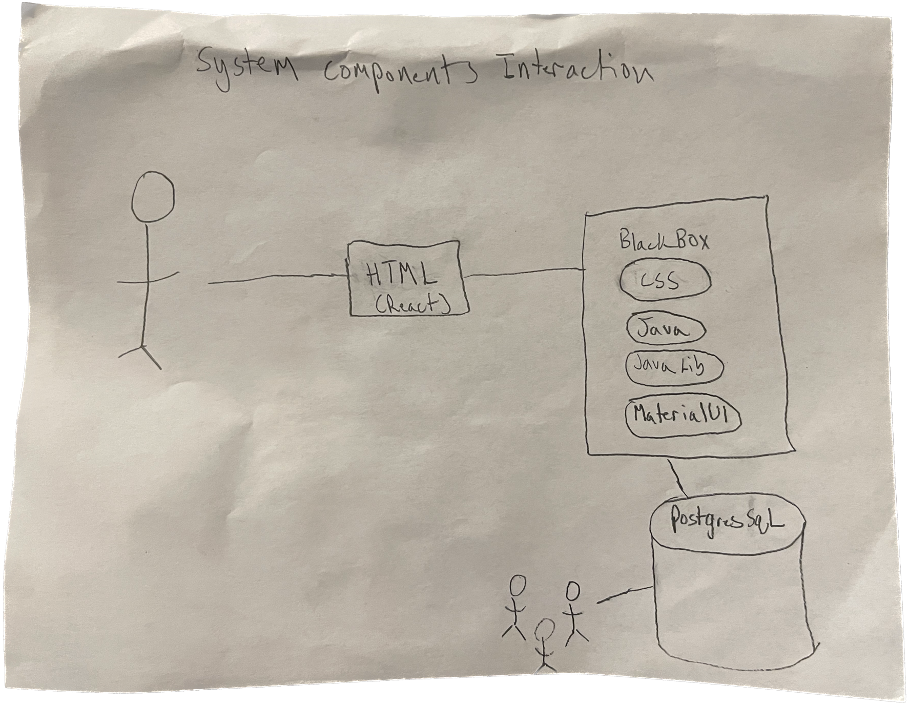 System components Interaction
HTML
(React)
Black Box
CSS
Java
Java Lib
MaterialUI
PostgresSqL